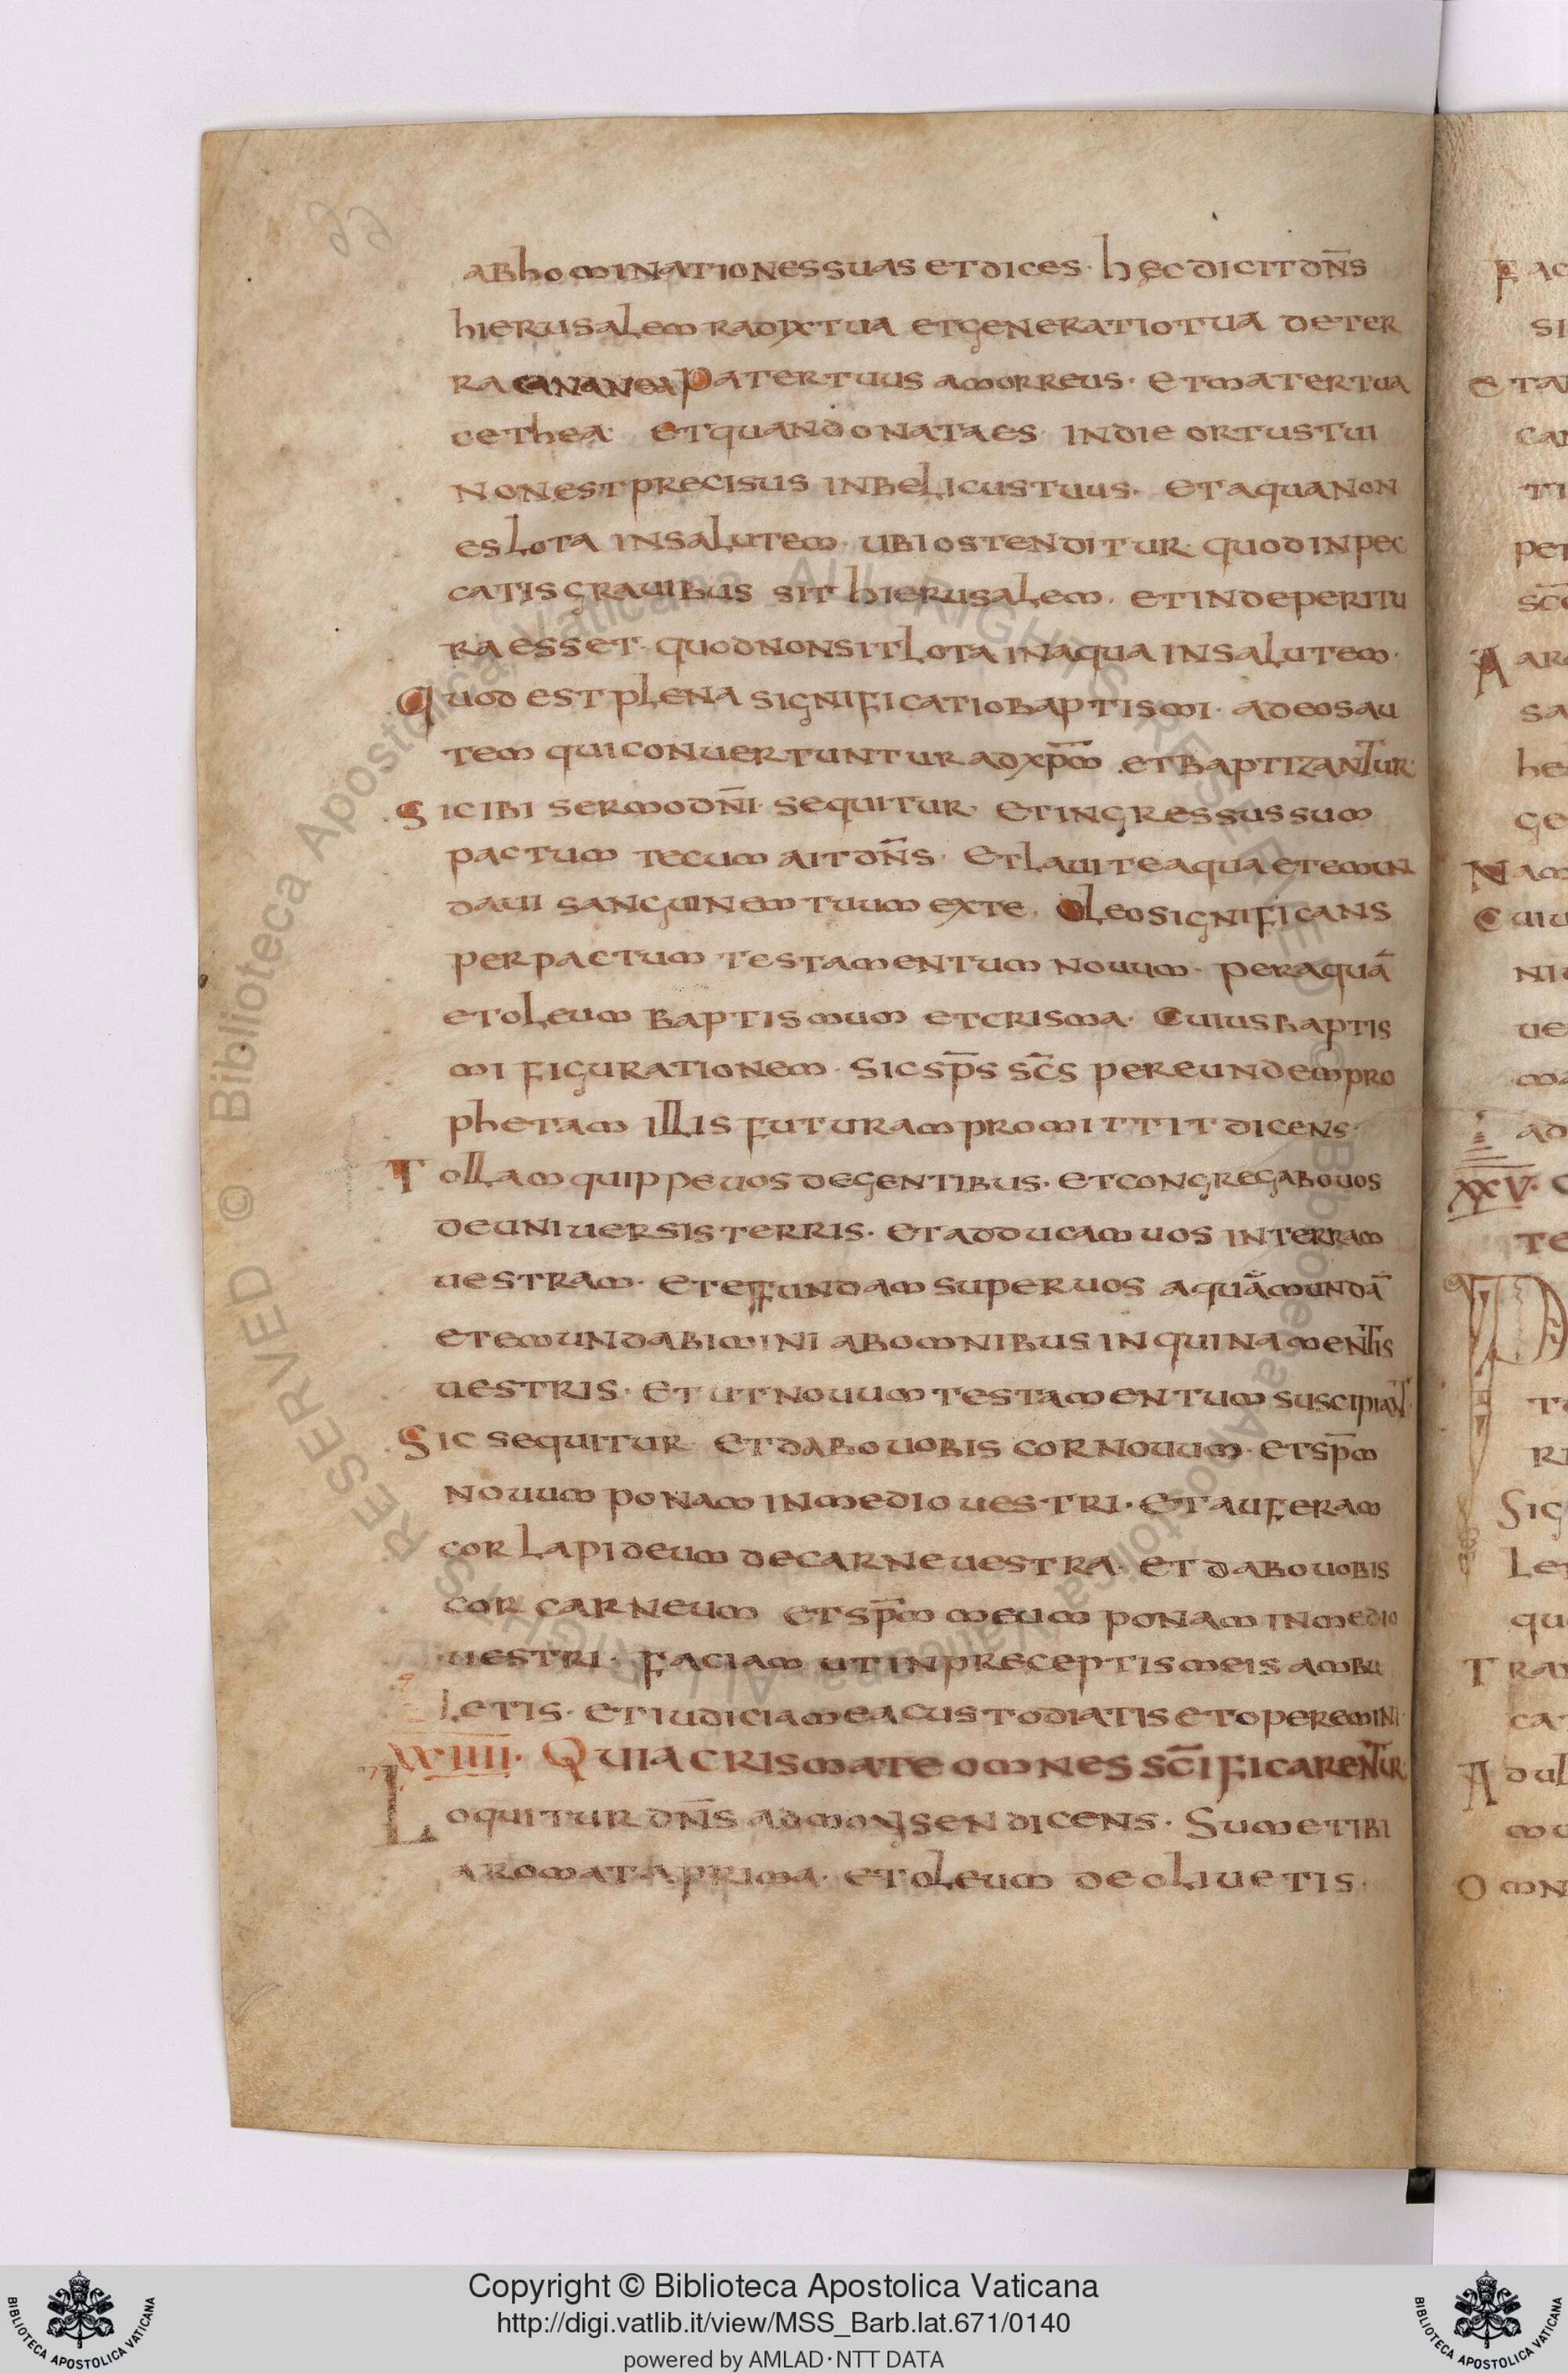 abhominationes suas et dices · hęc dicit dn̄s
hierusalem radix tua et generatio tua de ter
ra cananea pater tuus amorreus · et mater tua
cethea · et quando nata es · in die ortus tui
non est precisus inbelicus tuus · et aqua non
es lota in salutem · ubi ostenditur · quod in pec
catis grauibus sit hierusalem · et inde peritu
ra esset · quod non sit lota in aqua in salutem ·
Quod est plena significatio baptismi · ad eos au
tem qui conuertuntur ad xp̄m · et baptizantur ·
Sic ibi sermo dn̄i · sequitur · et ingressus sum
pactum tecum ait dn̄s · et laui te aqua et emun
daui sanguinem tuum ex te · Oleo significans
per pactum testamentum nouum · per aquā
et oleum baptismum et crisma · Cuius baptis
mi figurationem · sic sp̄s sc̄s per eundem pro
phetam illis futuram promittit dicens ·
Tollam quippe uos de gentibus · et congregabo uos
de uniuersis terris · et adducam uos in terram
uestram · et effundam super uos aquā mundā
et emundabimini ab omnibus inquinamentis
uestris · et ut nouum testamentum suscipiant ·
Sic sequitur et dabo uobis cor nouum · et sp̄m
nouum ponam in medio uestri · et auferam
cor lapideum de carne uestra · et dabo uobis
cor carneum et sp̄m meum ponam in medio
uestri · faciam ut in preceptis meis ambu
letis · et iudicia mea custodiatis et operemini ·
XXIIII · Quia crismate omnes sc̄ificarentur
Loquitur dn̄s ad moysen dicens · Sume tibi
aromata prima · et oleum de oliuetis ·
Copyright © Biblioteca Apostolica Vaticana
http://digi.vatlib.it/view/MSS_Barb.lat.671/0140
powered by AMLAD·NTT DATA